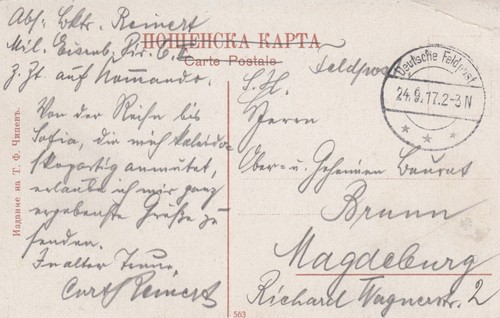 Abs: Bktr. Reinert
Mil. Eisenb. Dir. 6,
Z. Zt. auf Kommando.
ПОЩЕНСКА КАРТА
Carte Postale
Feldpost
Deutsche Feldpost
24.9.17. 2-3 N
Von der Reise bis
Sofia, die mich kaleido-
skopartig anmutet,
erlaube ich mir ganz
ergebenste Grüße zu
senden.
In alter Treue,
Curt Reinert
S. H.
Herrn
Ober- u. Geheimen Baurat
Brunn
Magdeburg
Richard Wagnerstr. 2
Издание на Т. Ф. Чипевъ.
563